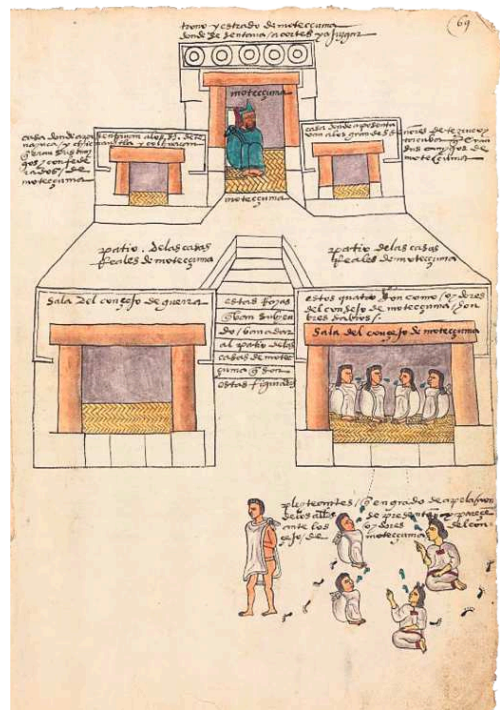 69
trono y estrado de moteccuma
donde se sentava a cortes y a juzgar
moteccuma
moteccuma
casa donde aposentavan a los
casa donde aposenta
van a los grandes señores de tezcuco y
tacuba q̄ eran
sus amigos de
moteccuma
patio. de las casas
Reales de moteccuma
patio de las casas
Reales de moteccuma
sala del consejo de guerra
estas Rayas
q̄ van subien
do / van a dar
al patio de las
casas de motec
çuma q̄ son
estas figurado
estos quatro son como / oydores
del consejo de moteccuma / hon
bres sabios /.
Sala del consejo de moteccuma
pleyteantes / q̄ en grado de apelaçion
de los se presentan y pareçen
ante los oydores del con
sejo / de moteccuma